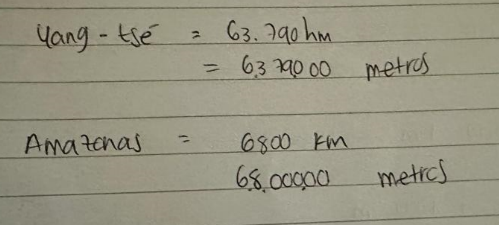 Yang-tsé = 63.790hm
= 6.379.000 metros
Amazonas = 6800 km
6.8.00.000 metros